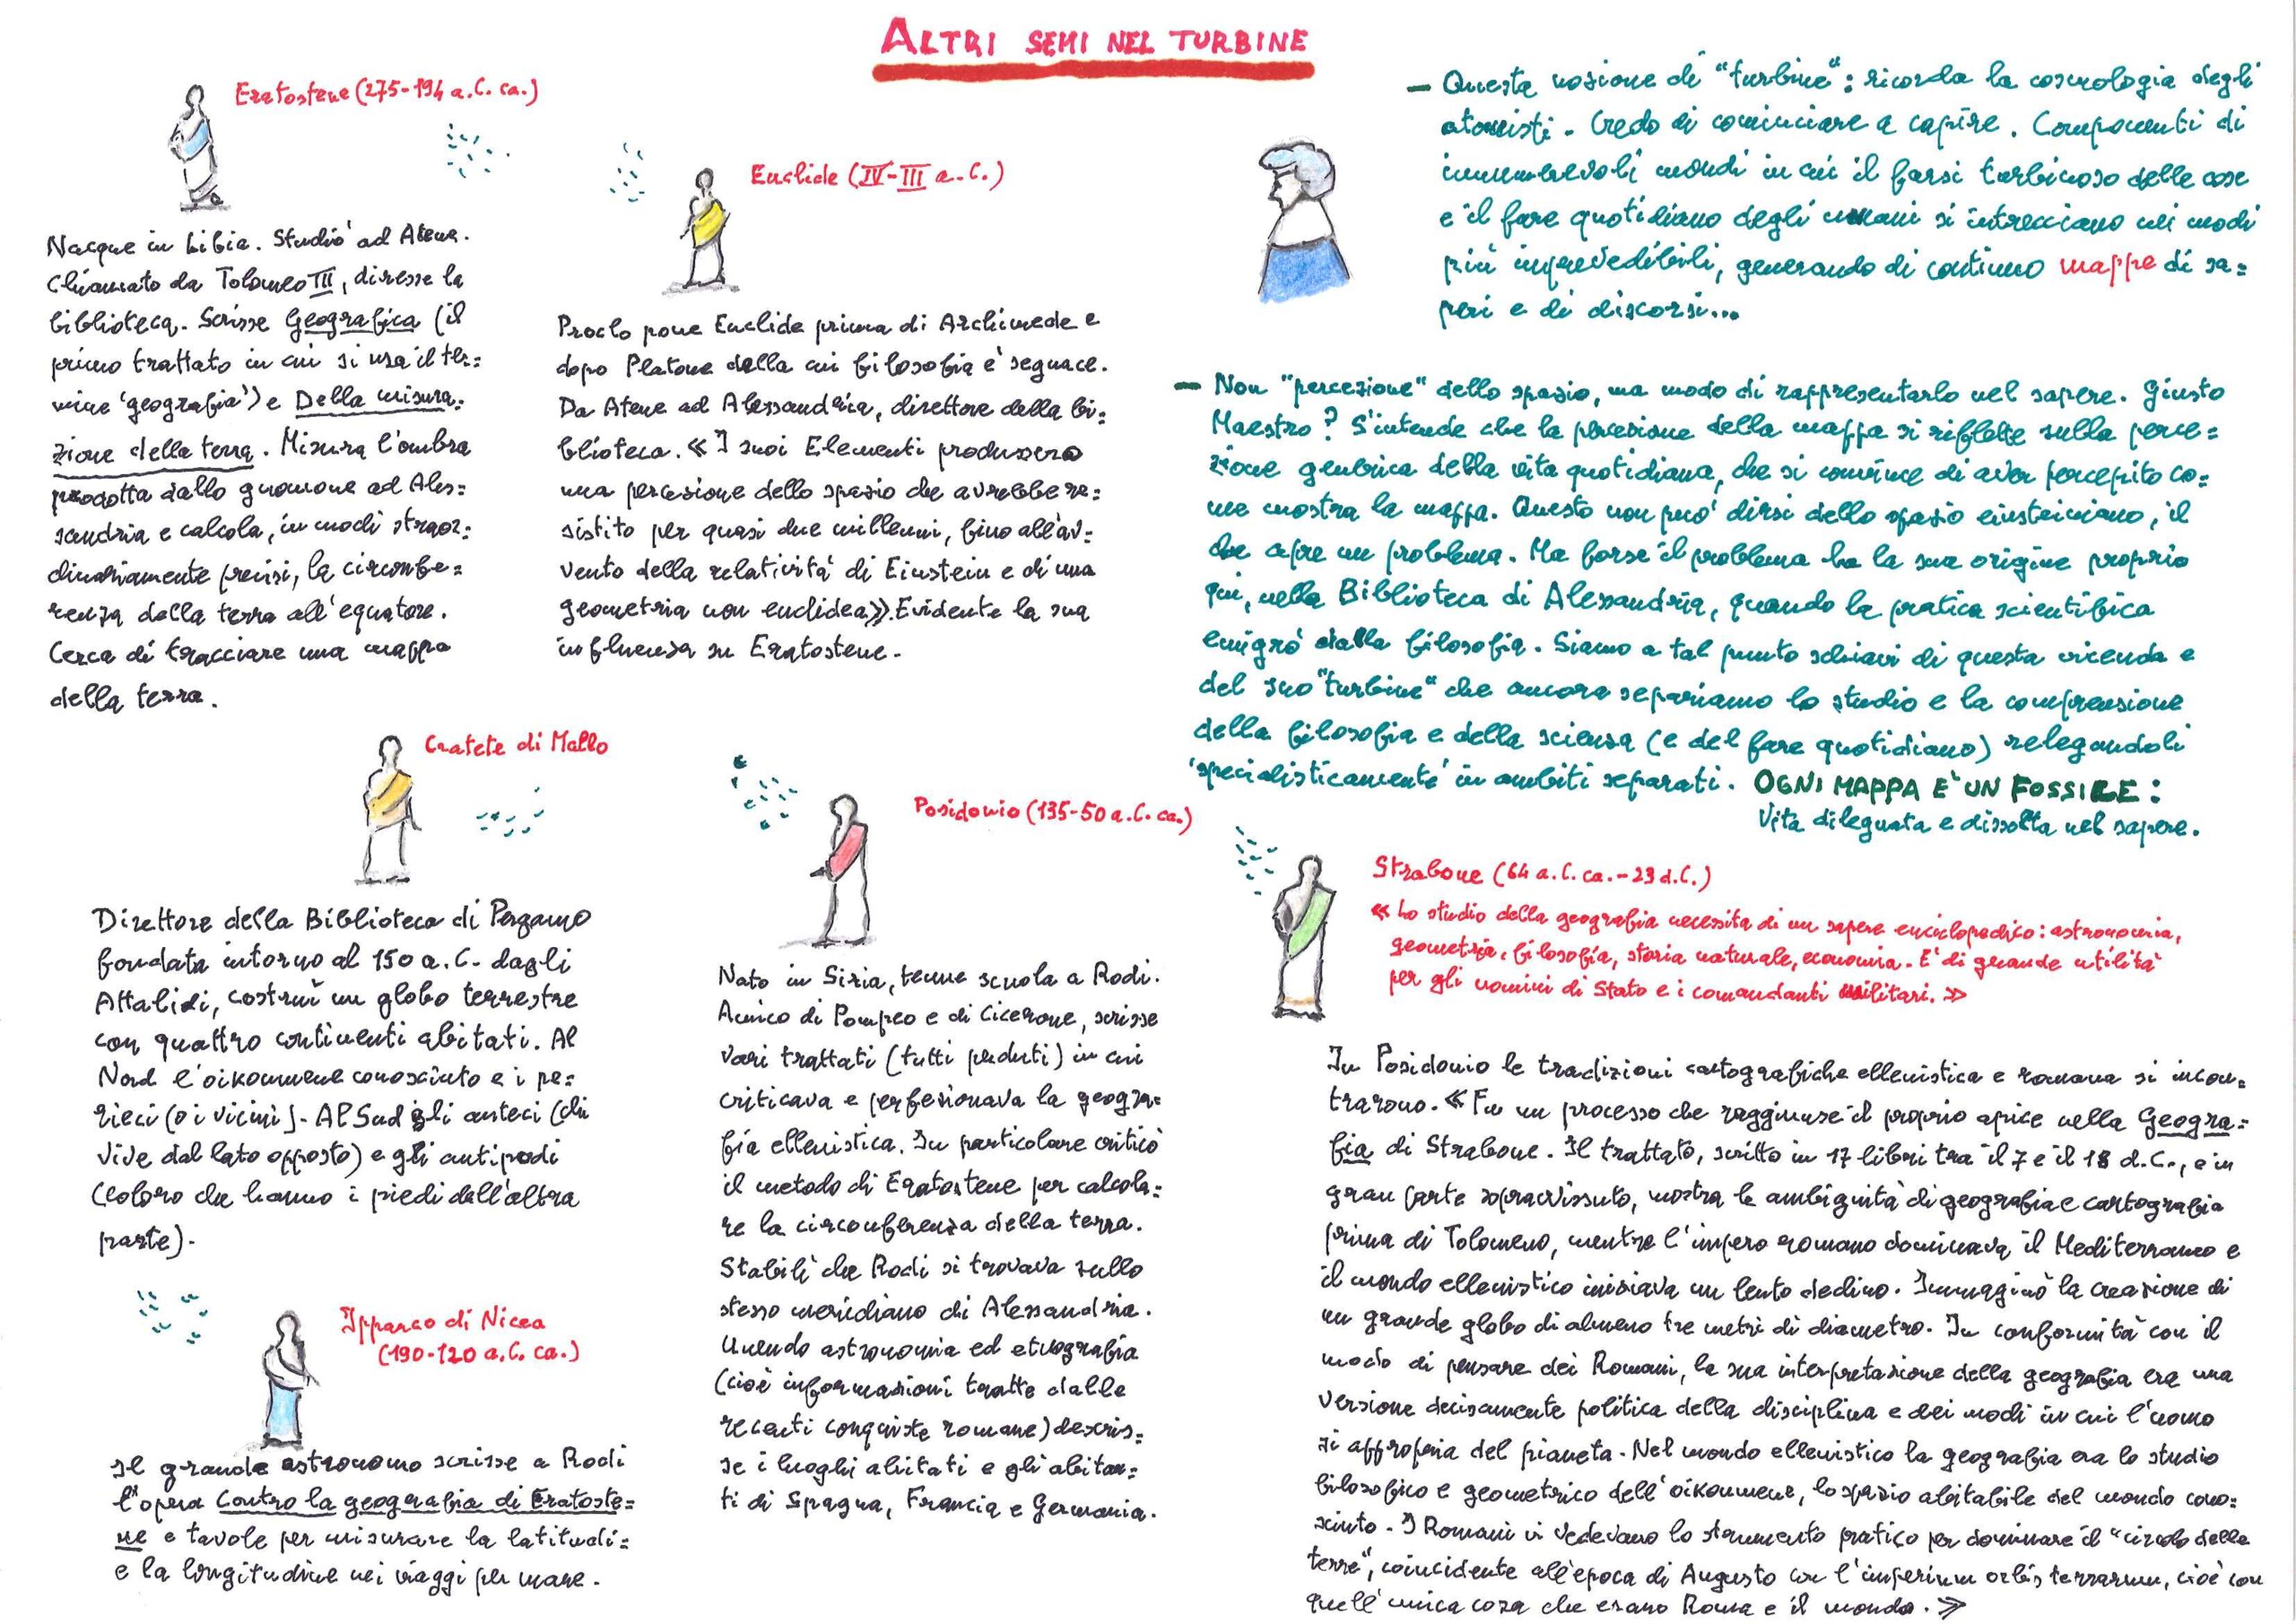 ALTRI SEMI NEL TURBINE
Eratostene (275-194 a.C. ca.)
Nacque in Libia. Studiò ad Atene.
Chiamato da Tolomeo III, diresse la
biblioteca. Scrisse Geografica (il
primo trattato in cui si usa il ter=
mine 'geografia') e Della misura=
zione della terra. Misura l'ombra
prodotta dallo gnomone ad Ales=
sandria e calcola, in modi straor=
dinariamente precisi, la circonfe=
renza della terra all'equatore.
Cerca di tracciare una mappa
della terra.
Euclide (IV-III a.C.)
Proclo pone Euclide prima di Archimede e
dopo Platone della cui filosofia è seguace.
Da Atene ad Alessandria, direttore della bi=
blioteca. «I suoi Elementi produssero
una percezione dello spazio che avrebbe re=
sistito per quasi due millenni, fino all'av=
vento della relatività di Einstein e di una
geometria non euclidea». Evidente la sua
influenza su Eratostene.
- Questa nozione di "turbine": ricorda la cosmologia degli
atomisti. Credo di cominciare a capire. Componenti di
innumerevoli mondi in cui il farsi turbinoso delle cose
e il fare quotidiano degli umani si intrecciano nei modi
più imprevedibili, generando di continuo mappe di sa=
peri e di discorsi...
- Non "percezione" dello spazio, ma modo di rappresentarlo nel sapere. Giusto
Maestro? S'intende che la percezione della mappa si riflette sulla perce=
zione generica della vita quotidiana, che si convince di aver percepito co=
me mostra la mappa. Questo non può dirsi dello spazio einsteiniano, il
che apre un problema. Ma forse il problema ha la sua origine proprio
qui, nella Biblioteca di Alessandria, quando la pratica scientifica
emigrò dalla filosofia. Siamo a tal punto schiavi di questa vicenda e
del suo "turbine" che ancora separiamo lo studio e la comprensione
della filosofia e della scienza (e del fare quotidiano) relegandoli
'specialisticamente' in ambiti separati. OGNI MAPPA E' UN FOSSILE:
Vita dileguata e dissolta nel sapere.
Cratete di Mallo
Direttore della Biblioteca di Pergamo
fondata intorno al 150 a.C. dagli
Attalidi, costruì un globo terrestre
con quattro continenti abitati. Al
Nord l'oikoumene conosciuto e i pe=
rieci (o i vicini). Al Sud gli anteci (chi
vive dal lato opposto) e gli antipodi
(coloro che hanno i piedi dall'altra
parte).
Posidonio (135-50 a.C. ca.)
Nato in Siria, tenne scuola a Rodi.
Amico di Pompeo e di Cicerone, scrisse
vari trattati (tutti perduti) in cui
criticava e perfezionava la geogra=
fia ellenistica. In particolare criticò
il metodo di Eratostene per calcola=
re la circonferenza della terra.
Stabilì che Rodi si trovava sullo
stesso meridiano di Alessandria.
Unendo astronomia ed etnografia
(cioè informazioni tratte dalle
recenti conquiste romane) descris=
se i luoghi abitati e gli abitan=
ti di Spagna, Francia e Germania.
Ipparco di Nicea
(190-120 a.C. ca.)
Il grande astronomo scrisse a Rodi
l'opera Contro la geografia di Eratoste=
ne e tavole per misurare la latitudi=
e la longitudine nei viaggi per mare.
Strabone (64 a.C. ca.-23 d.C.)
«Lo studio della geografia necessita di un sapere enciclopedico: astronomia,
geometria, filosofia, storia naturale, economia. E' di grande utilità
per gli uomini di Stato e i comandanti militari.»
In Posidonio le tradizioni cartografiche ellenistica e romana si incon=
trarono. «Fu un processo che raggiunse il proprio apice nella Geogra=
fia di Strabone. Il trattato, scritto in 17 libri tra il 7 e il 18 d.C., e in
gran parte sopravvissuto, mostra le ambiguità di geografia e cartografia
prima di Tolomeno, mentre l'impero romano dominava il Mediterraneo e
il mondo ellenistico iniziava un lento declino. Immaginò la creazione di
un grande globo di almeno tre metri di diametro. In conformità con il
modo di pensare dei Romani, la sua interpretazione della geografia era una
versione decisamente politica della disciplina e dei modi in cui l'uomo
si appropria del pianeta. Nel mondo ellenistico la geografia era lo studio
filosofico e geometrico dell'oikoumene, lo spazio abitabile del mondo cono=
sciuto. I Romani vi vedevano lo strumento pratico per dominare il "circolo delle
terre", coincidente all'epoca di Augusto con l'imperium orbis terrarum, cioè con
quell'unica cosa che erano Roma e il mondo.»